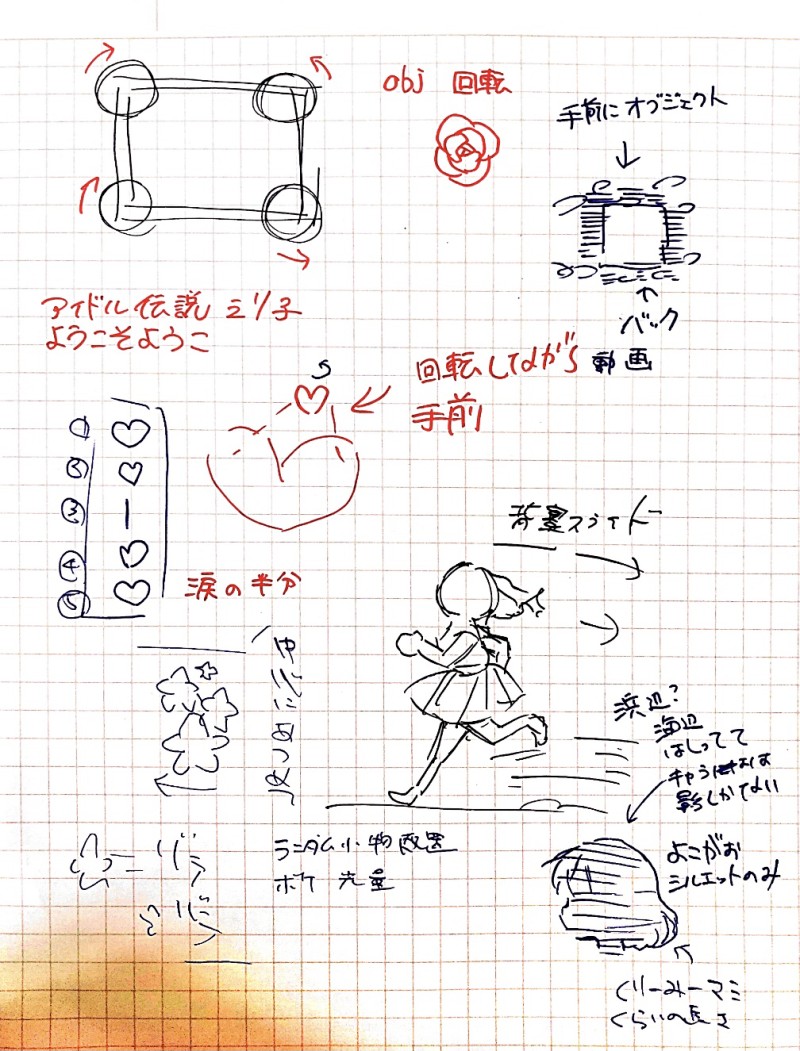 obj 回転
手前にオブジェクト
バック
動画
アイドル伝説 えり子
ようこそようこ
回転しながら
手前
①
②
③
④
⑤
涙の半分
背景スライド
浜辺?
海辺
はしってて
影しかでない
ランダム小物配置
ボケ 光量
よこがお
シルエットのみ
くりーみーマミ
くらいの長さ